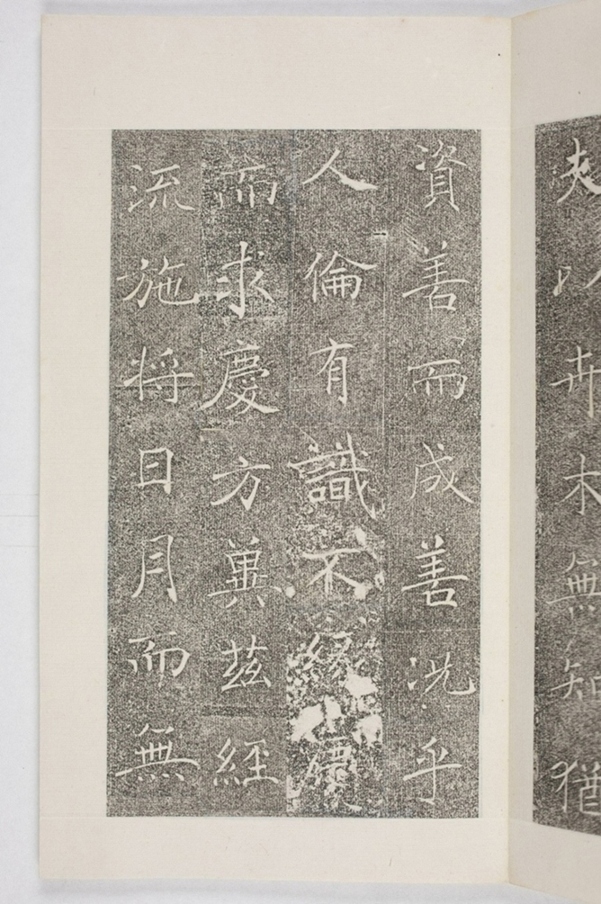 夫以卉木無知猶
資善而成善況乎
人倫有識不緣慶
而求慶方冀茲經
流施將日月而無